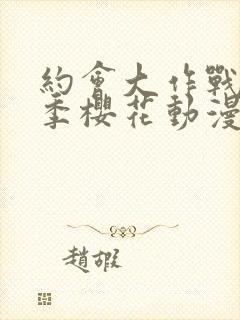 約會大作戰
季櫻花動漫
趙嘏